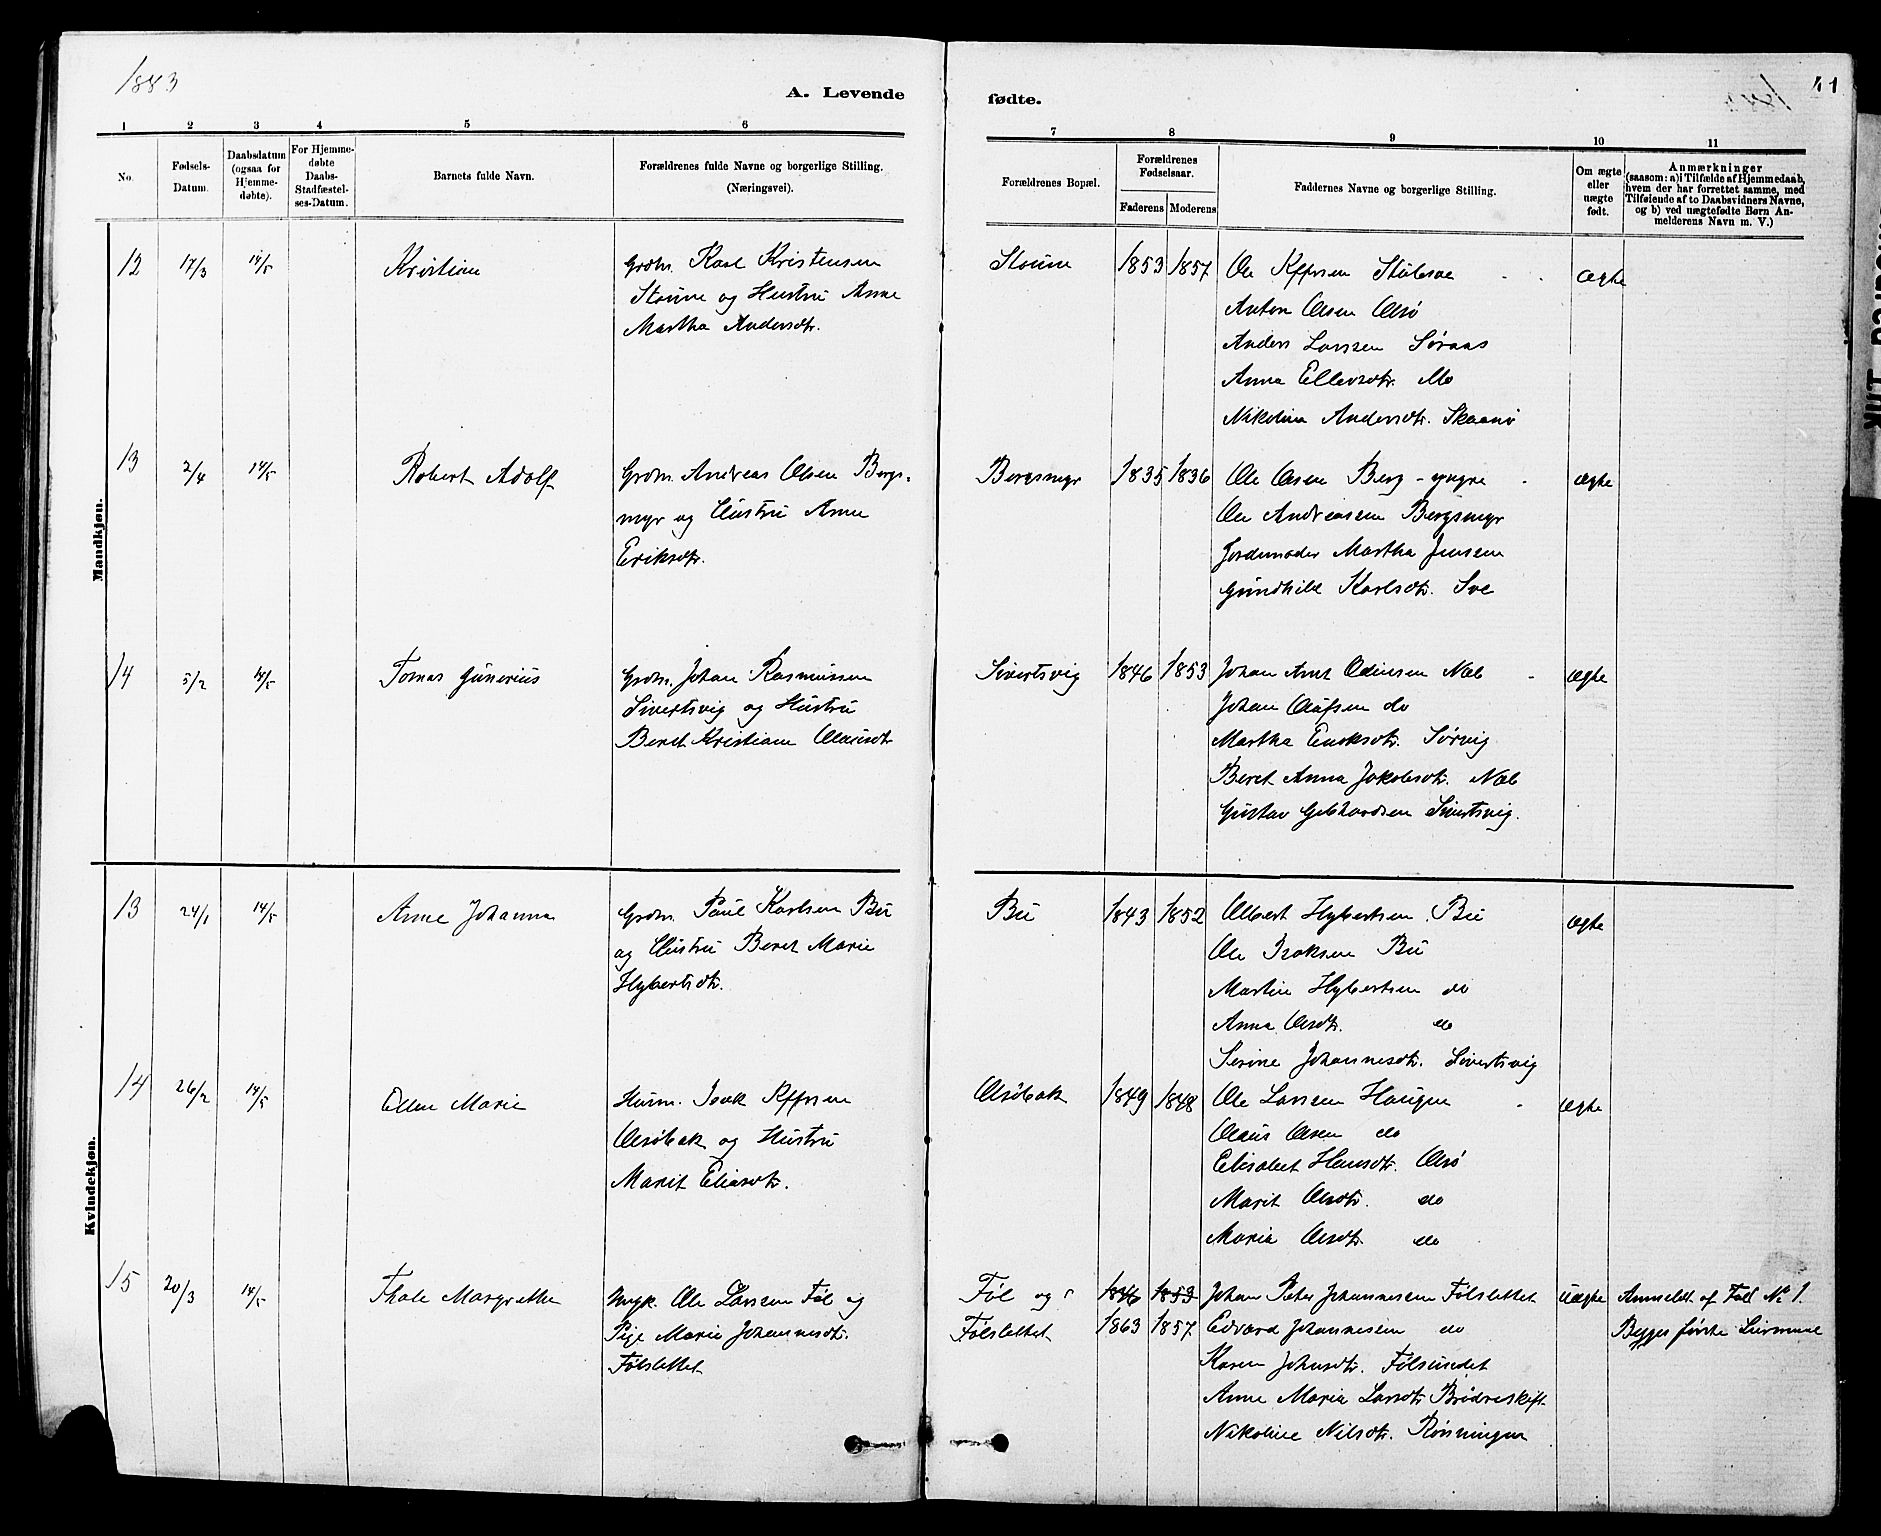 1883
A. Levende
fødte.
41
1
2
3
4
5
6
7
8
9
10
11
No.
Fødsels-
Datum.
Daabsdatum
(ogsaa for
Hjemme-
døbte).
For Hjemme-
døbte
Daabs-
Stadfæstel-
ses-Datum.
Barnets fulde Navn.
Forældrenes fulde Navne og borgerlige Stilling.
(Næringsvei).
Forældrenes Bopæl.
Forældrenes
Fødselsaar.
Faderens
Moderens
Faddernes Navne og borgerlige Stilling.
Om ægte
eller
uægte
født.
Anmærkninger
(saasom: a) i Tilfælde af Hjemmedaab,
hvem der har forrettet samme, med
Tilføiende af to Daabsvidners Navne,
og b) ved uægtefødte Børn An-
melderens Navn m. V.)
Mandkjøn.
12 17/3 14/5 Kristian
Grdbr. Karl Kristensen
Stoune og Hustru Anne
Martha Andersdtr.
Stoune 1853 1857
Ole Anton Olsen Olsø
Anders Larsen Søraas
Anna Ellevsdtr. Mo
Nikolina Andersdtr. Skaanø
ægte
13 2/4 14/5 Robert Adolf
Grdbr. Andreas Olsen Bergs-
myr og Hustru Anne
Eriksdtr.
Bergsmyr 1835 1836
Ole Olsen Berg - yngre
Ole Andreassen Bergsmyr
Jordemoder Martha Jensen
Gundhild Karlsdtr. Sve
ægte
14 5/2 14/5 Tomas Gunerius
Grdbr. Johan Rasmussen
Sivertsvig og Hustru
Beret Kristian Olausdtr
Sivertsvig 1846 1853
Johan Arnt Odinsen Næb
Johan Olufsen do
Martha Eriksdtr. Sørvig
Beret Anna Jakobsdtr. Næb
Gustav Gebhardsen Sivertsvig.
ægte
Kvindekjøn.
13 24/1 14/5 Anne Johanna
Grdbr. Paul Karlsen Bu
og Hustru Beret Marie
Hybertsdtr.
Bu 1843 1852
Albert Hybertsen Bu
Ole Isaksen Bu
Martin Hybertsen do
Anna Olsdtr. do
Serine Johannesdtr. Sivertsvig
ægte
14 26/2 14/5 Ellen Marie
Husm. Isak
Olsøbak og Hustru
Marit Eliasdtr.
Olsøbak 1849 1848
Ole Larsen Haugen
Olaus Olsen do
Elisabet Hansdtr. Olsø
Marit Olsdtr. do
Maria Olsdtr. do
ægte
15 20/3 14/5 Thale Margrethe
Ungk. Ole Larsen Føl og
Pige Marie Johannesdtr.
Følslettet
Føl og
Følslettet
1846 1853
1863 1857
Johan Peter Johannessen Følslettet
Edvard Johannesen do
Karen Johnsdtr. Følsundet
Anne Maria Larsdtr Brødreskift
Nikoline Nilsdtr. Rønningen
uægte
Anmeldt af Fad. No 1.
Begges første Leiermaal